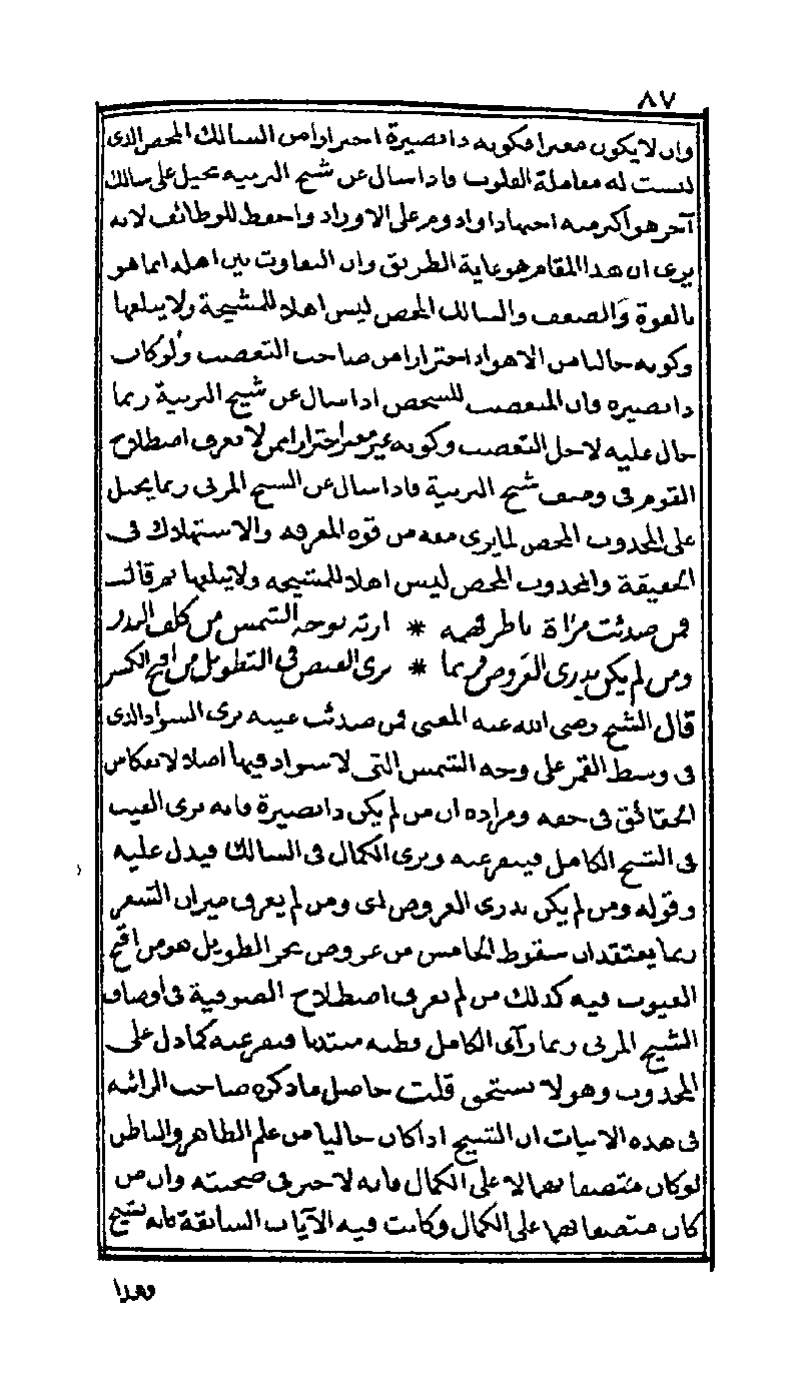 ٨٧
وان لا يكون مغترا فكونه ذا بصيرة احترازا من السالك المحض الذى
ليست له معاملة القلوب فاذا سال عن شيخ التربيه يحيل على سالك
آخر هو اكرمنه اجتهادا وادوم على الاوراد واحفظ للوظائف لانه
يرى ان هذا المقام هو غاية الطريق وان التفاوت بين اهله انما هو
بالقوة والضعف والسالك المحض ليس اهلا للمشيخة ولا يبلغها
وكونه خاليا من الاهواء احترازا من صاحب التعصب ولو كان
ذا بصيره فان المتعصب للشخص اذا سال عن شيخ التربية ربما
حال عليه لاجل التعصب وكونه غير مغتر احترازا ممن لا يعرف اصطلاح
القوم فى وصف شيخ التربية فاذا سال عن الشيخ المربى ربما يحيل
على المجذوب المحض لما يرى معه من قوه المعرفه والاستهلاك فى
الحقيقة والمجذوب المحض ليس اهلا للمشيخه ولا يبلغها ثم قال
فمن صدئت مرآة ناظر فهمه * ارته بوجه الشمس من كلف البدر
ومن لم يكن يدرى العروض فربما * يرى القبض فى التطويل من اقبح الكسر
قال الشيخ رضى الله عنه المعنى فمن صدئت عينه يرى السواد الذى
فى وسط القمر على وجه الشمس التى لا سواد فيها اصلا لانعكاس
الحقائق فى حقه ومراده ان من لم يكن ذا بصيرة فانه يرى العيب
فى الشيخ الكامل فينفر عنه ويرى الكمال فى السالك فيدل عليه
وقوله ومن لم يكن يدرى العروض اى ومن لم يعرف ميزان الشعر
ربما يعتقد ان سقوط الخامس من عروض بحر الطويل هو من اقبح
العيوب فيه كذلك من لم يعرف اصطلاح الصوفية فى اوصاف
الشيخ المربى ربما رآى الكامل فظنه مبتدئا فينفر عنه كما دل على
المجذوب وهو لا يستحق قلت حاصل ما ذكره صاحب الرائيه
فى هذه الابيات ان الشيخ اذا كان خاليا من علم الظاهر والباطن
لو كان متصفا بهما لا على الكمال فانه لا خير فى صحبته وان من
كان متصفا بهما على الكمال وكانت فيه الآيات السابقة فانه شيخ
وهذا